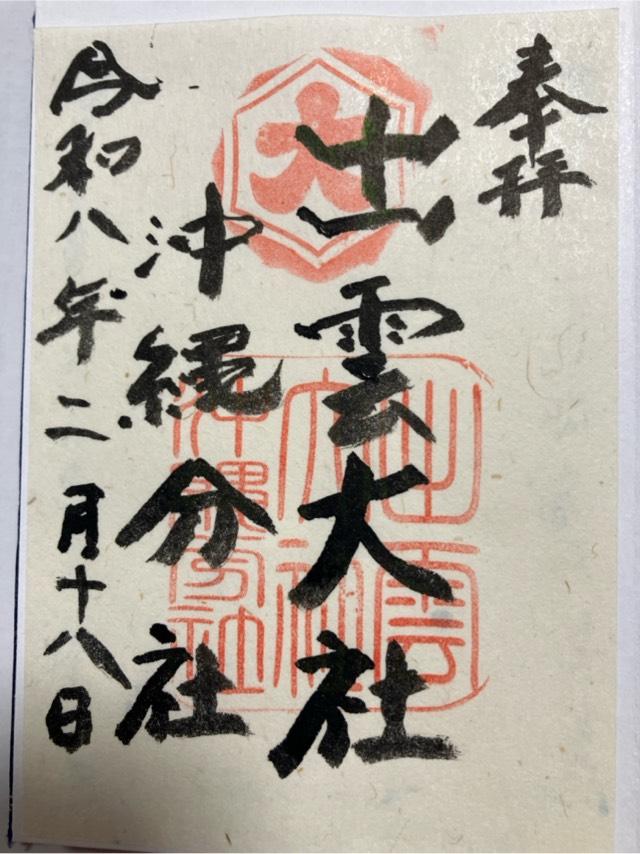 奉拝
出雲大社
沖縄分社
令和八年二月十八日
大
出雲
大社
沖縄分社